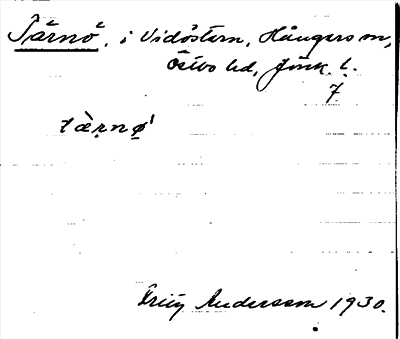 Tärnö, i Vidöstern, Hångers sn,
Östbo hd, Jönk. l.
7
tὰrnø̀
Erik Andersson 1930.